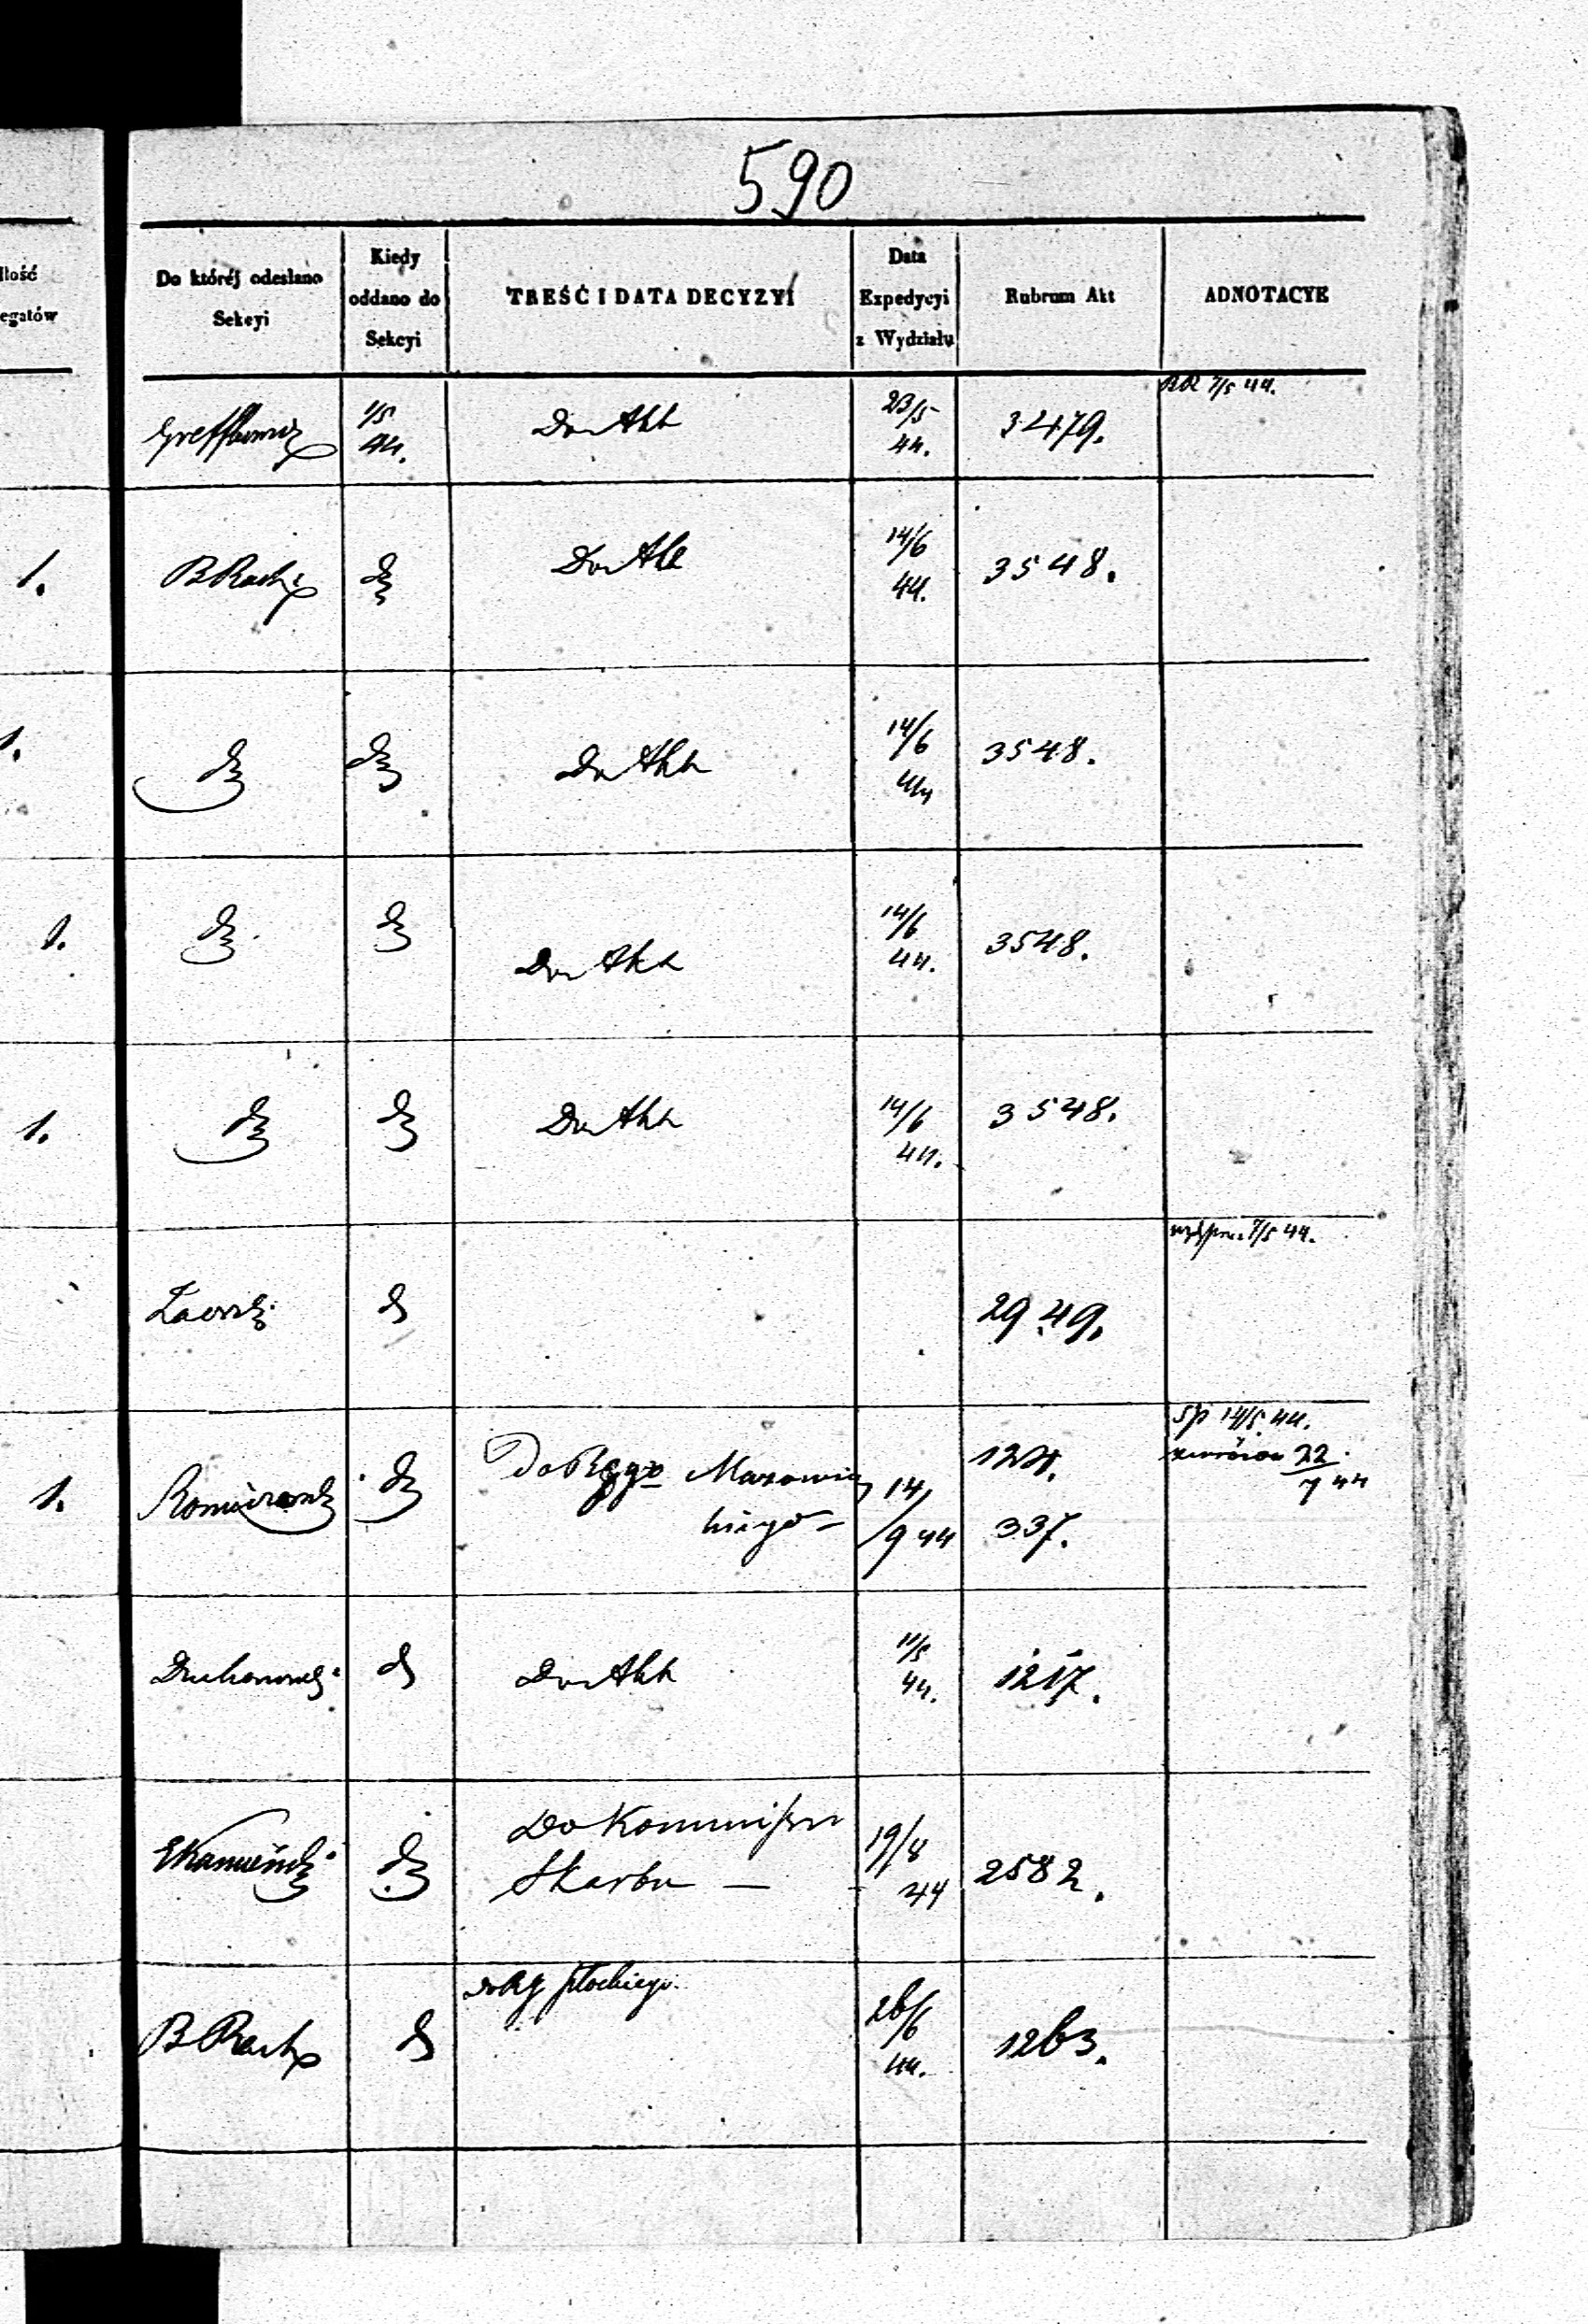 590
Ilość
egatów
Do któréj odesłano
Sekcyi
Kiedy
oddano do
Sekcyi
TREŚĆ I DATA DECYZYI
Data
Expedycyi
z Wydziału
Rubrum Akt
ADNOTACYE
1/5
44.
Do Akt
23/5
44.
3479.
7/5 44.
1.
B Rach
do
Do Akt
14/6
44.
3548.
1.
do
do
Do Akt
14/6
44
3548.
1.
do
do
Do Akt
14/6
44.
3548.
1.
do
do
Do Akt
14/6
44.
3548.
do
2949.
7/5 44.
1.
do
Do Rggo Mazowiec
kiego —
14/
/9 44
124.
337.
Sp 14/5 44.
zwrócon 22
7 44
do
Do Akt
11/5
44.
1217.
EKamieński
do
Do Kommissyi
Skarbu —
19/8
44
2582.
B Rach
do
do Rg Płockiego.
26/6
44.
1263.